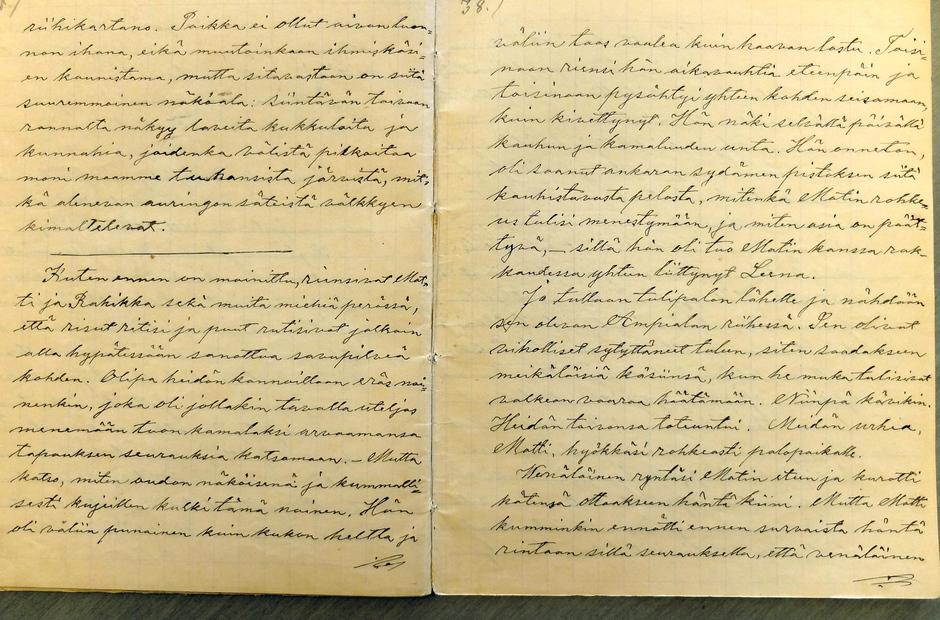 riihikartano. Paikka ei ollut aivan luon=
non ihana, eikä muutoinkaan ihmiskäsi=
en kaunistama, mutta sitävastaan on siitä
suuremmoinen näköala: siintävän taivaan
rannalta näkyy laveita kukkuloita ja
kunnahia, joidenka välistä pilkoittaa
moni maamme tuhansista järvistä, mit=
kä alenevan auringon säteistä välkkyen
kimaltelevat.
Kuten ennen on mainittu, riensivät Mat=
ti ja Rahikka sekä muita miehiä perässä,
että risut ritisi ja puut rutisivat jalkain
alla hypätessään sanottua savupilveä
kohden. Olipa heidän kannoillaan eräs nai=
nenkin, joka oli jollakin tavalla utelias
menemään tuon kamalaksi arvaamansa
tapauksen seurauksia katsomaan. — Mutta
katso, miten oudon näköisenä ja kummalli=
sesti kujeillen kulki tämä nainen. Hän
oli väliin punainen kuin kukon heltta ja
38.)
väliin taas vaalea kuin haavan lastu. Toisi=
naan riensi hän aikavauhtia eteenpäin ja
toisinaan pysähtyi yhteen kohden seisomaan,
kuin kivettynyt. Hän näki selvällä päivällä
kauhun ja kamaluuden unta. Hän onneton,
oli saanut ankaran sydämen pistoksen siitä
kauhistavasta pelosta, mitenkä Matin rohke=
us tulisi menestymään, ja miten asia on päät=
tyvä, — sillä hän oli tuo Matin kanssa rak=
kaudessa yhteen liittynyt Leena.
Jo tullaan tulipalon lähelle ja nähdään
sen olevan Ampialan riihessä. Sen olivat
viholliset sytyttäneet tulen, siten saadakseen
meikäläisiä käsiinsä, kun he muka tulisivat
valkean vaaraa häätämään. Niinpä kävikin.
Heidän toivonsa toteuntui. Meidän urhea,
Matti, hyökkäsi rohkeasti palopaikalle.
Venäläinen ryntäsi Matin eteen ja kurotti
kätensä ottaakseen häntä kiini. Mutta Matti
kumminkin ennätti ennen survaista häntä
rintaan sillä seurauksella, että venäläinen